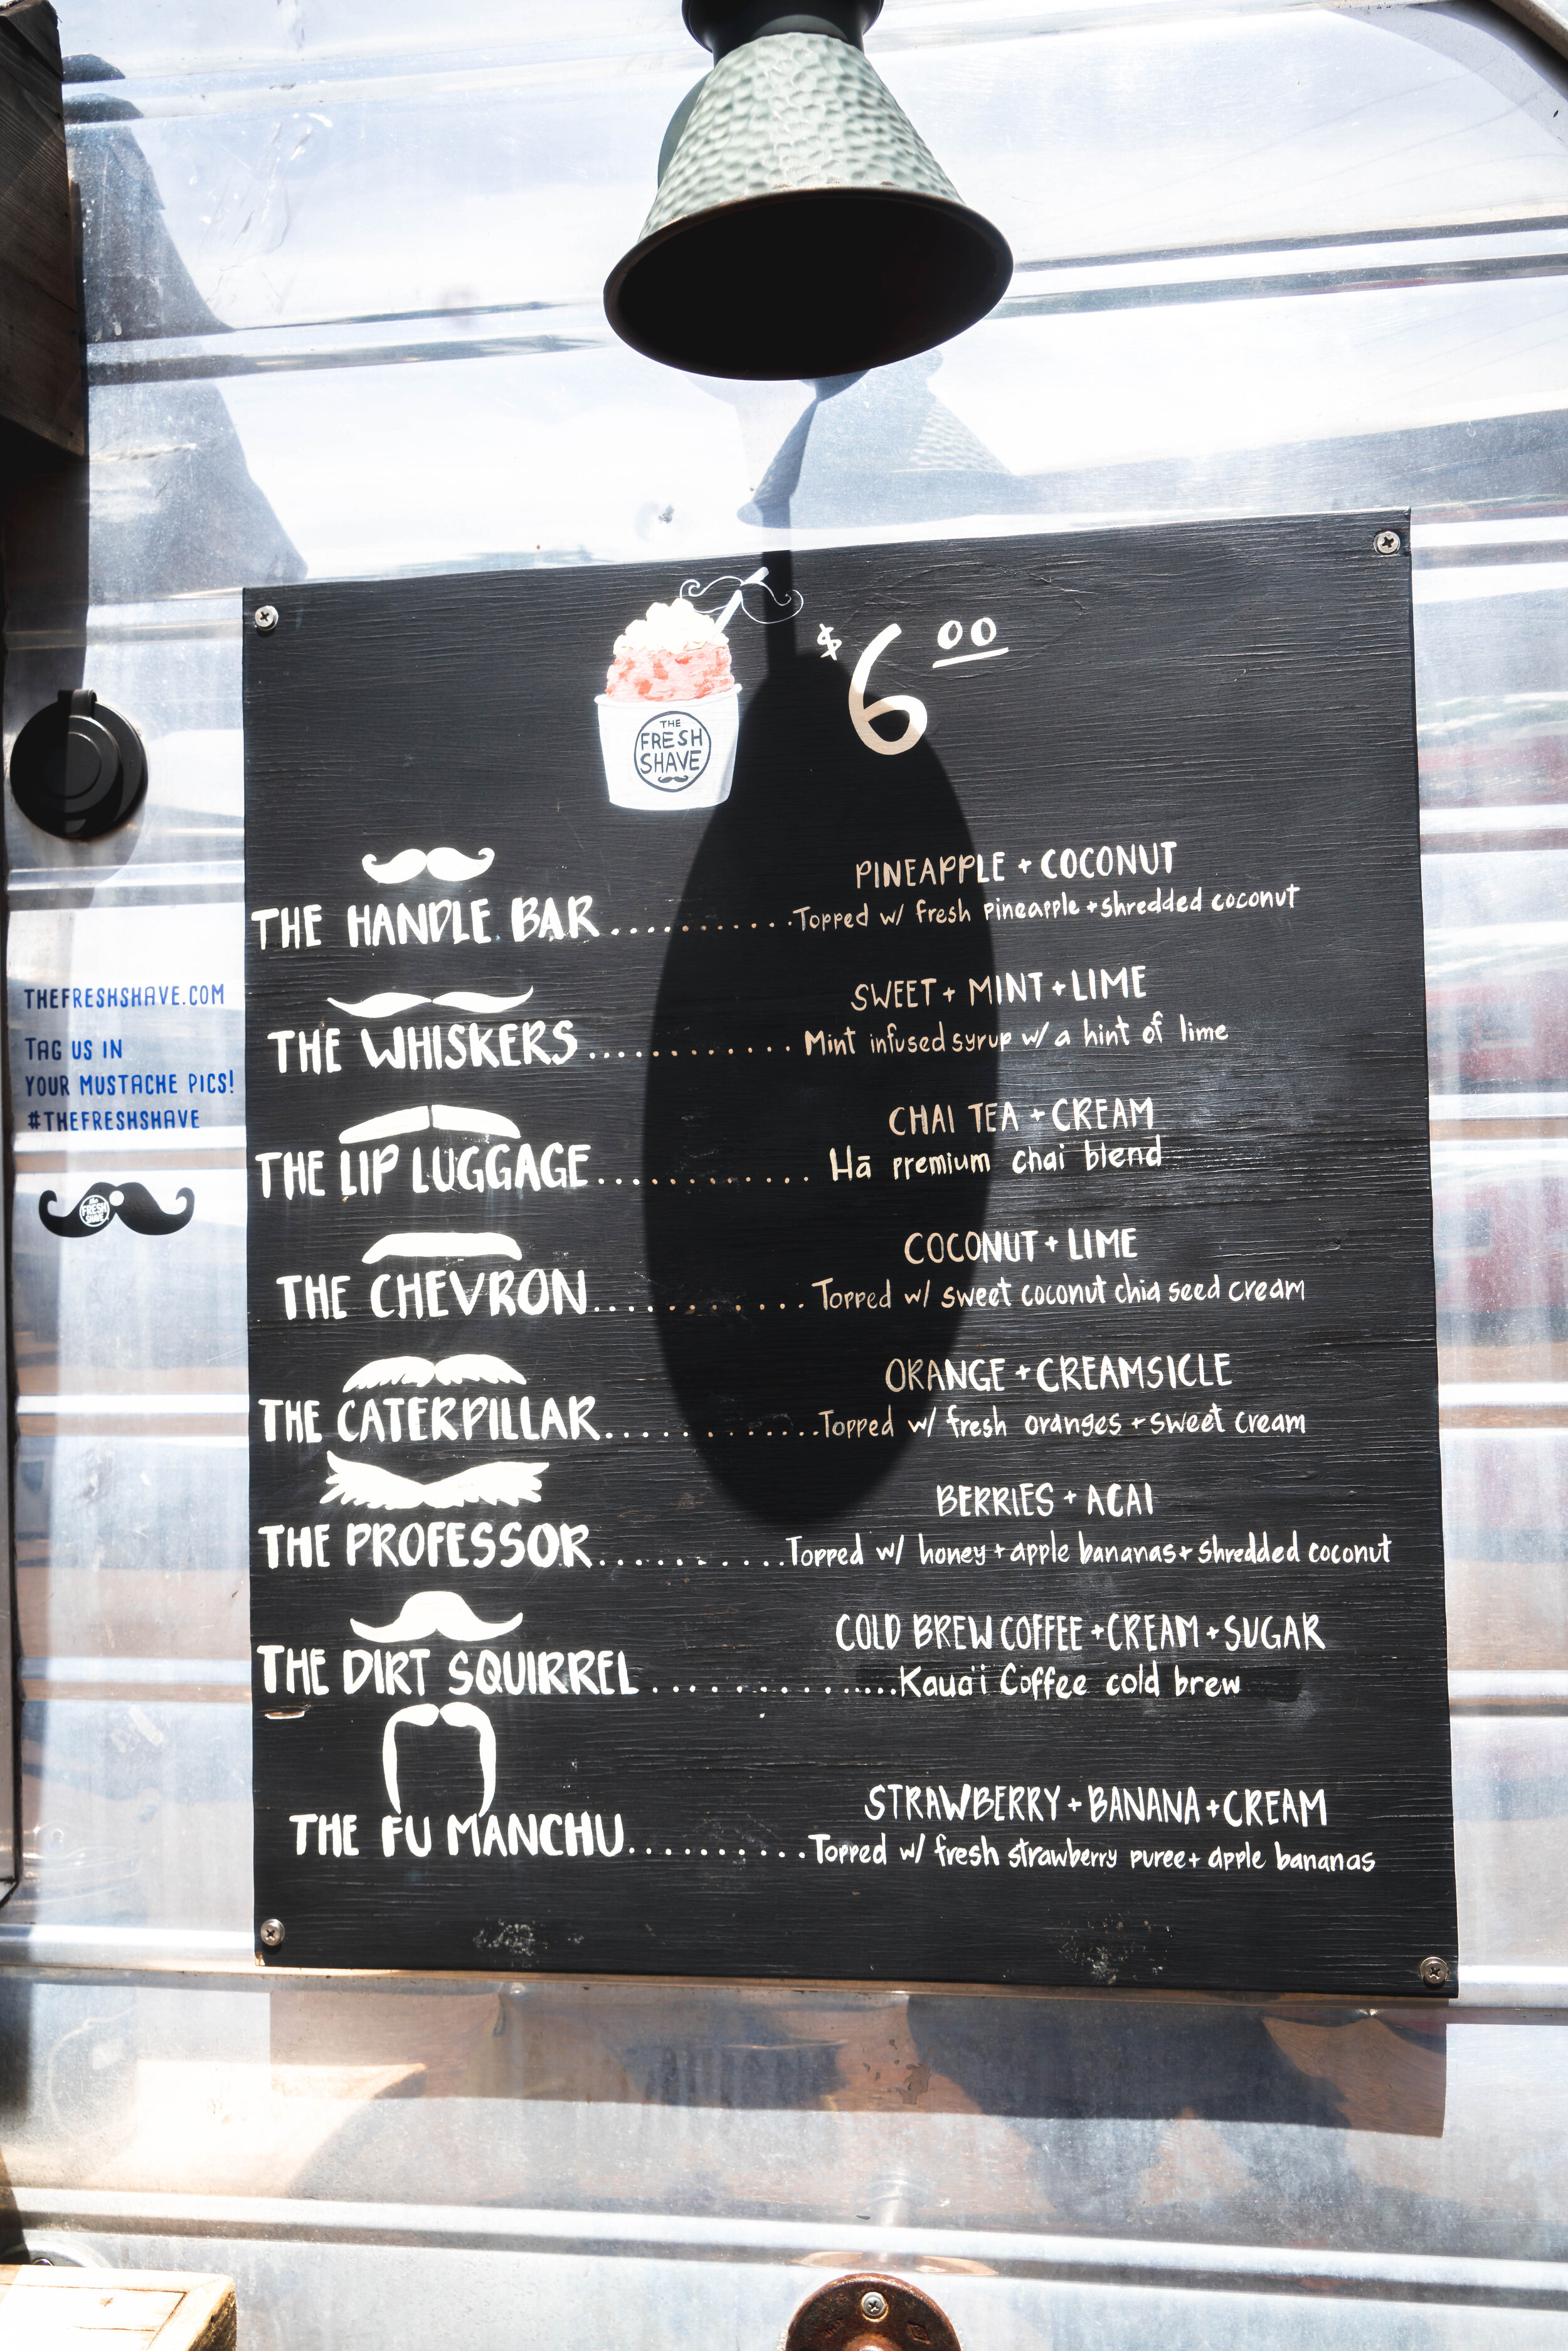 $6.00
THE
FRESH
SHAVE
THE HANDLE BAR...........
PINEAPPLE + COCONUT
Topped w/ fresh pineapple + shredded coconut
THE WHISKERS............
SWEET + MINT + LIME
Mint infused syrup w/ a hint of lime
THE LIP LUGGAGE............
CHAI TEA + CREAM
Hā premium chai blend
THE CHEVRON............
COCONUT + LIME
Topped w/ sweet coconut chia seed cream
THE CATERPILLAR............
ORANGE + CREAMSICLE
Topped w/ fresh oranges + sweet cream
THE PROFESSOR...........
BERRIES + ACAI
Topped w/ honey + apple bananas + shredded coconut
THE DIRT SQUIRREL.............
COLD BREW COFFEE + CREAM + SUGAR
Kaua'i Coffee cold brew
THE FU MANCHU...........
STRAWBERRY + BANANA + CREAM
Topped w/ fresh strawberry puree + apple bananas
THEFRESHSHAVE.COM
TAG US IN
YOUR MUSTACHE PICS!
#THEFRESHSHAVE
THE
FRESH
SHAVE